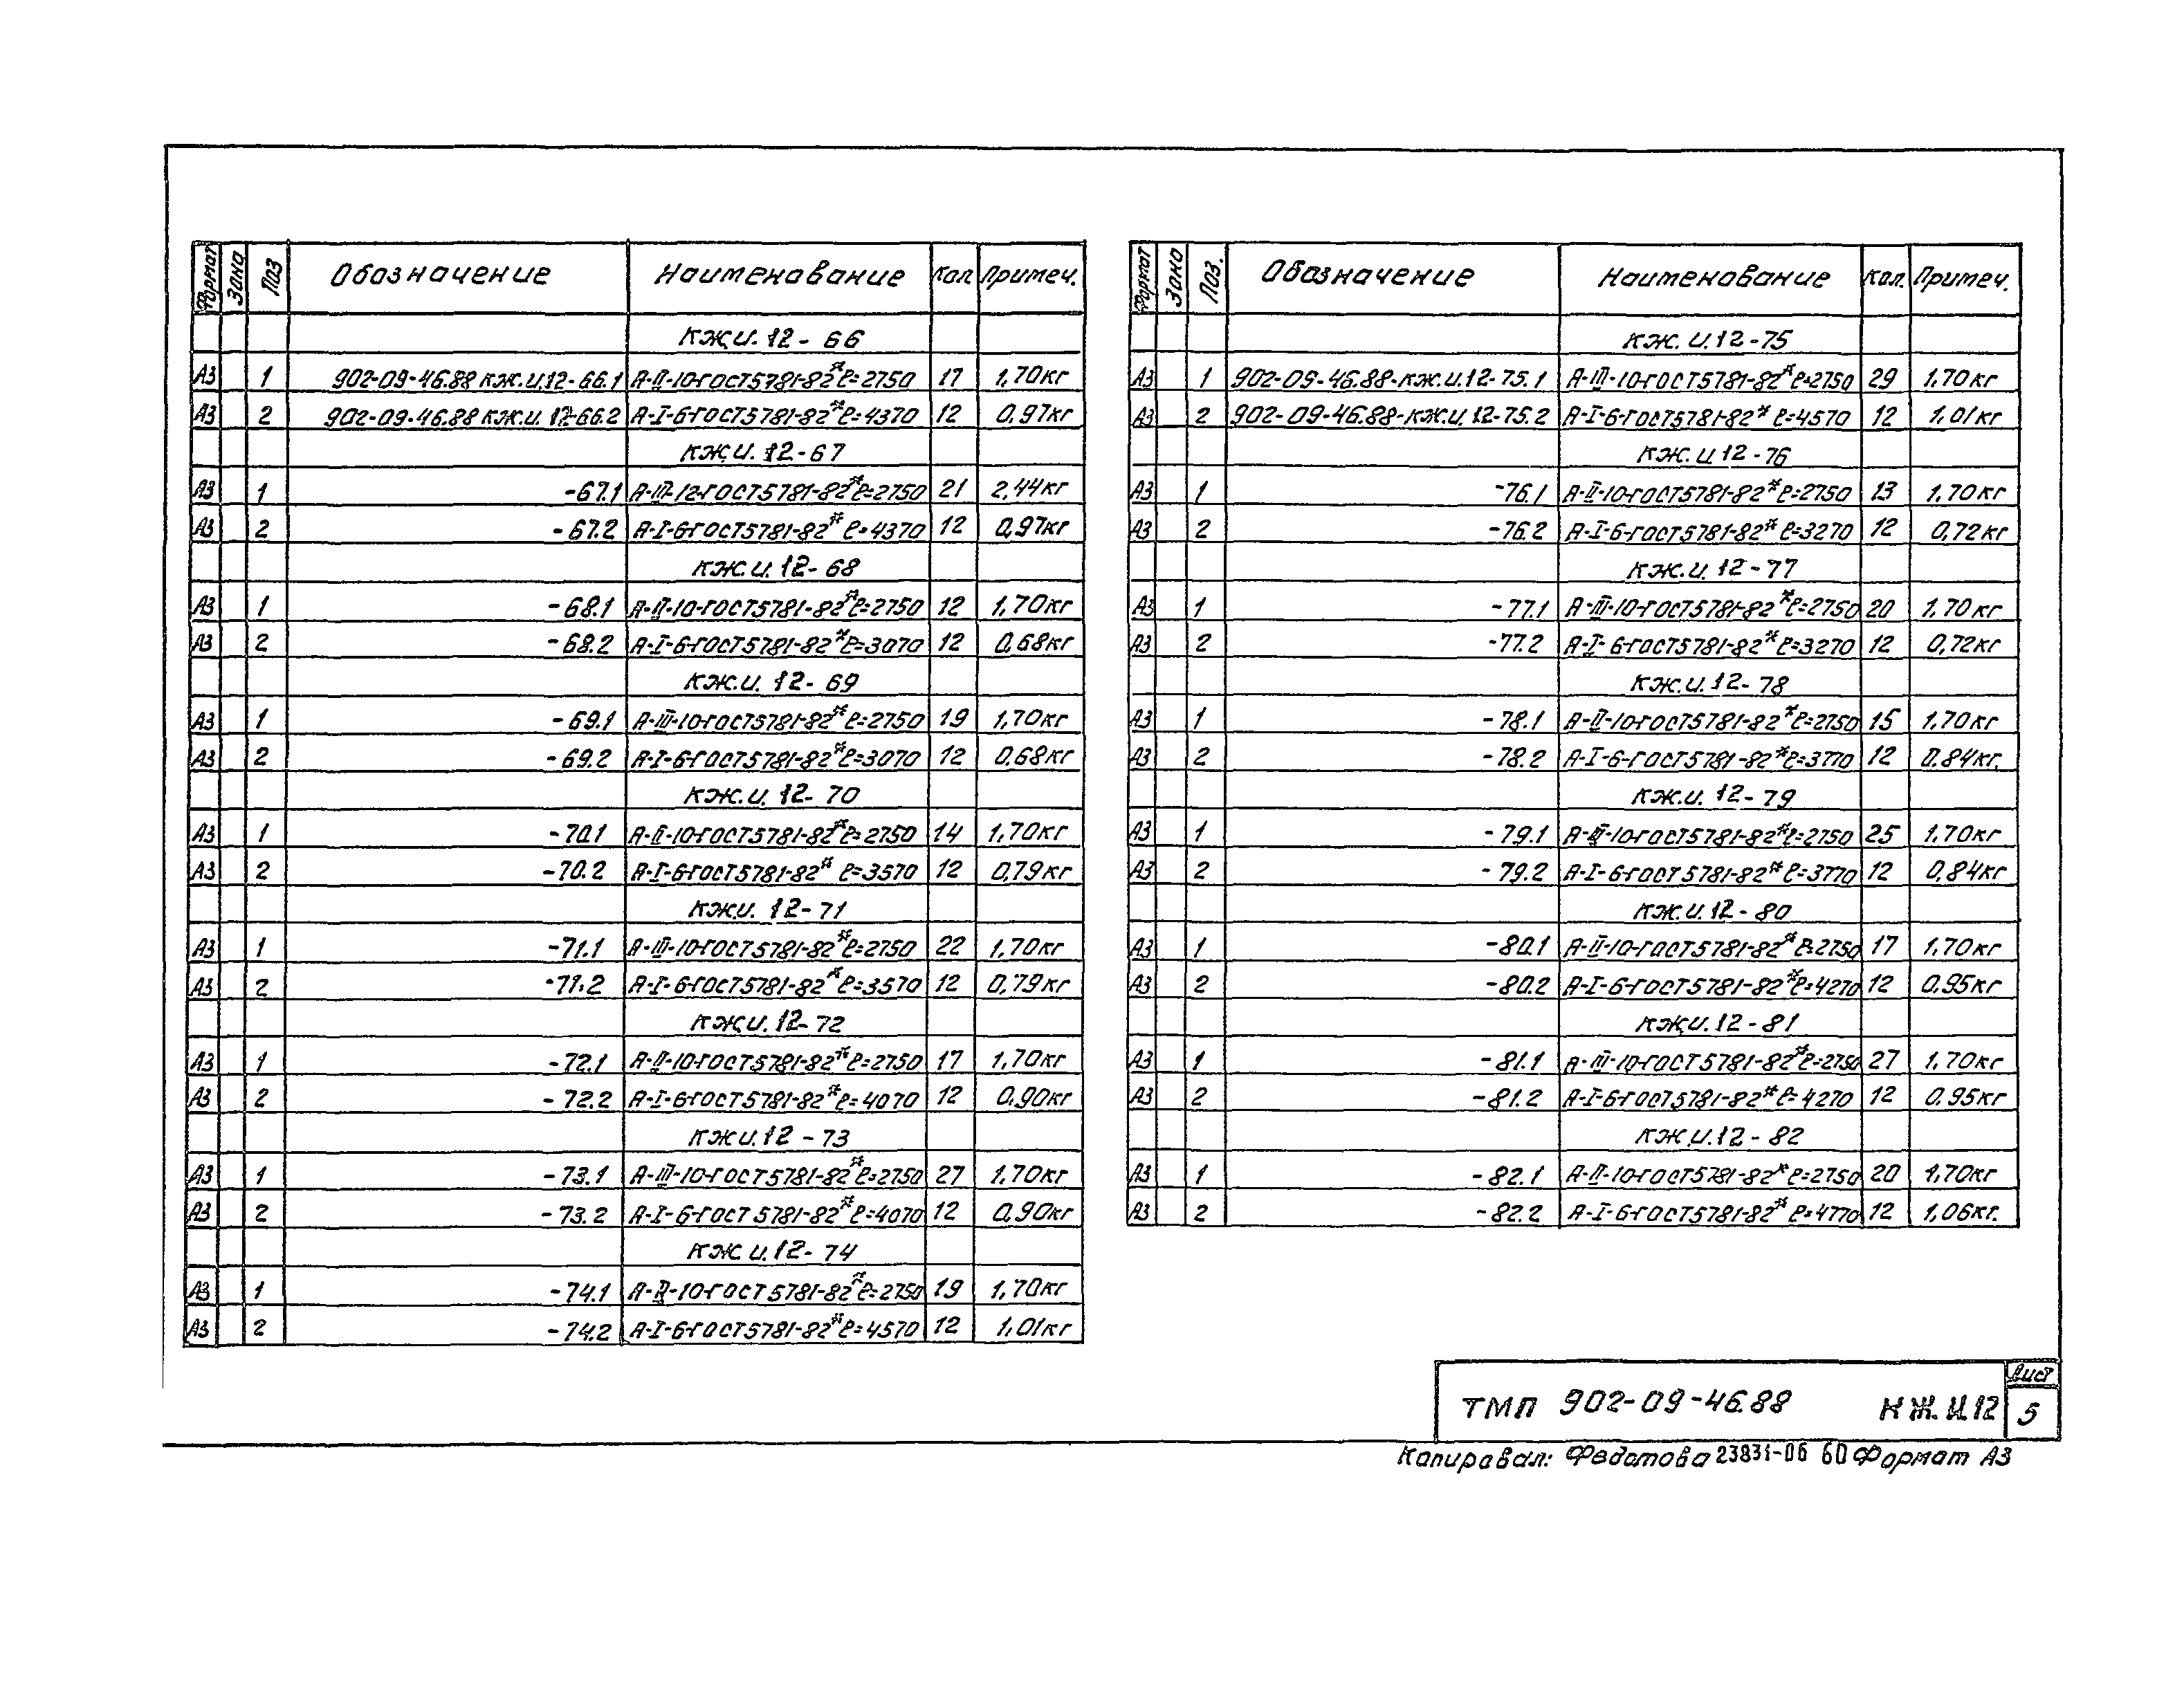 Формат Зона Поз Обозначение Наименование Кол Примеч.
КЖ.И. 12 - 66
А3 1 902-09-46.88 КЖ.И.12-66.1 А-II-10-ГОСТ5781-82* ℓ=2750 17 1,70кг
А3 2 902-09-46.88 КЖ.И. 12-66.2 А-I-6-ГОСТ5781-82* ℓ=4370 12 0,97кг
КЖ.И. 12-67
А3 1 -67.1 А-III-12-ГОСТ5781-82* ℓ=2750 21 2,44кг
А3 2 -67.2 А-I-6-ГОСТ5781-82* ℓ=4370 12 0,97кг
КЖ.И. 12-68
А3 1 -68.1 А-II-10-ГОСТ5781-82* ℓ=2750 12 1,70кг
А3 2 -68.2 А-I-6-ГОСТ5781-82* ℓ=3070 12 0,68кг
КЖ.И. 12-69
А3 1 -69.1 А-III-10-ГОСТ5781-82* ℓ=2750 19 1,70кг
А3 2 -69.2 А-I-6-ГОСТ5781-82* ℓ=3070 12 0.68кг
КЖ.И. 12-70
А3 1 -70.1 А-II-10-ГОСТ5781-82* ℓ=2750 14 1,70кг
А3 2 -70.2 А-I-6-ГОСТ5781-82* ℓ=3570 12 0,79кг
КЖ.И. 12-71
А3 1 -71.1 А-III-10-ГОСТ5781-82* ℓ=2750 22 1,70кг
А3 2 -71.2 А-I-6-ГОСТ5781-82* ℓ=3570 12 0,79кг
КЖ.И. 12-72
А3 1 -72.1 А-II-10-ГОСТ5781-82* ℓ=2750 17 1,70кг
А3 2 -72.2 А-I-6-ГОСТ5781-82* ℓ=4070 12 0,90кг
КЖ.И.12-73
А3 1 -73.1 А-III-10-ГОСТ5781-82* ℓ=2750 27 1.70кг
А3 2 -73.2 А-I-6-ГОСТ5781-82* ℓ=4070 12 0,90кг
КЖ.И.12-74
А3 1 -74.1 А-II-10-ГОСТ5781-82* ℓ=2750 19 1,70кг
А3 2 -74.2 А-I-6-ГОСТ5781-82* ℓ=4570 12 1,01кг
Формат Зона Поз. Обозначение Наименование Кол. Примеч.
КЖ.И.12-75
А3 1 902-09-46.88-КЖ.И.12-75.1 А-III-10-ГОСТ5781-82* ℓ=2750 29 1.70кг
А3 2 902-09-46.88-КЖ.И.12-75.2 А-I-6-ГОСТ5781-82* ℓ=4570 12 1,01кг
КЖ.И.12-76
А3 1 -76.1 А-II-10-ГОСТ5781-82* ℓ=2750 13 1.70кг
А3 2 -76.2 А-I-6-ГОСТ5781-82* ℓ=3270 12 0,72кг
КЖ.И. 12-77
А3 1 -77.1 А-III-10-ГОСТ5781-82* ℓ=2750 20 1,70кг
А3 2 -77.2 А-I-6-ГОСТ5781-82* ℓ=3270 12 0,72кг
КЖ.И.12-78
А3 1 -78.1 А-II-10-ГОСТ5781-82* ℓ=2750 15 1.70кг
А3 2 -78.2 А-I-6-ГОСТ5781-82* ℓ=3770 12 0.84кг.
КЖ.И. 12-79
А3 1 -79.1 А-III-10-ГОСТ5781-82* ℓ=2750 25 1.70кг
А3 2 -79.2 А-I-6-ГОСТ5781-82* ℓ=3770 12 0,84кг
КЖ.И.12-80
А3 1 -80.1 А-II-10-ГОСТ5781-82* ℓ=2750 17 1,70кг
А3 2 -80.2 А-I-6-ГОСТ5781-82* ℓ=4270 12 0.95кг
КЖ.И.12-81
А3 1 -81.1 А-III-10-ГОСТ5781-82* ℓ=2750 27 1,70кг
А3 2 -81.2 А-I-6-ГОСТ5781-82* ℓ=4270 12 0.95кг
КЖ.И.12-82
А3 1 -82.1 А-II-10-ГОСТ5781-82* ℓ=2750 20 1,70кг
А3 2 -82.2 А-I-6-ГОСТ5781-82* ℓ=4770 12 1,06кг.
ТМП 902-09-46.88 КЖ.И.12
Лист
5
Копировал: Федотова 23831-06 60 Формат А3